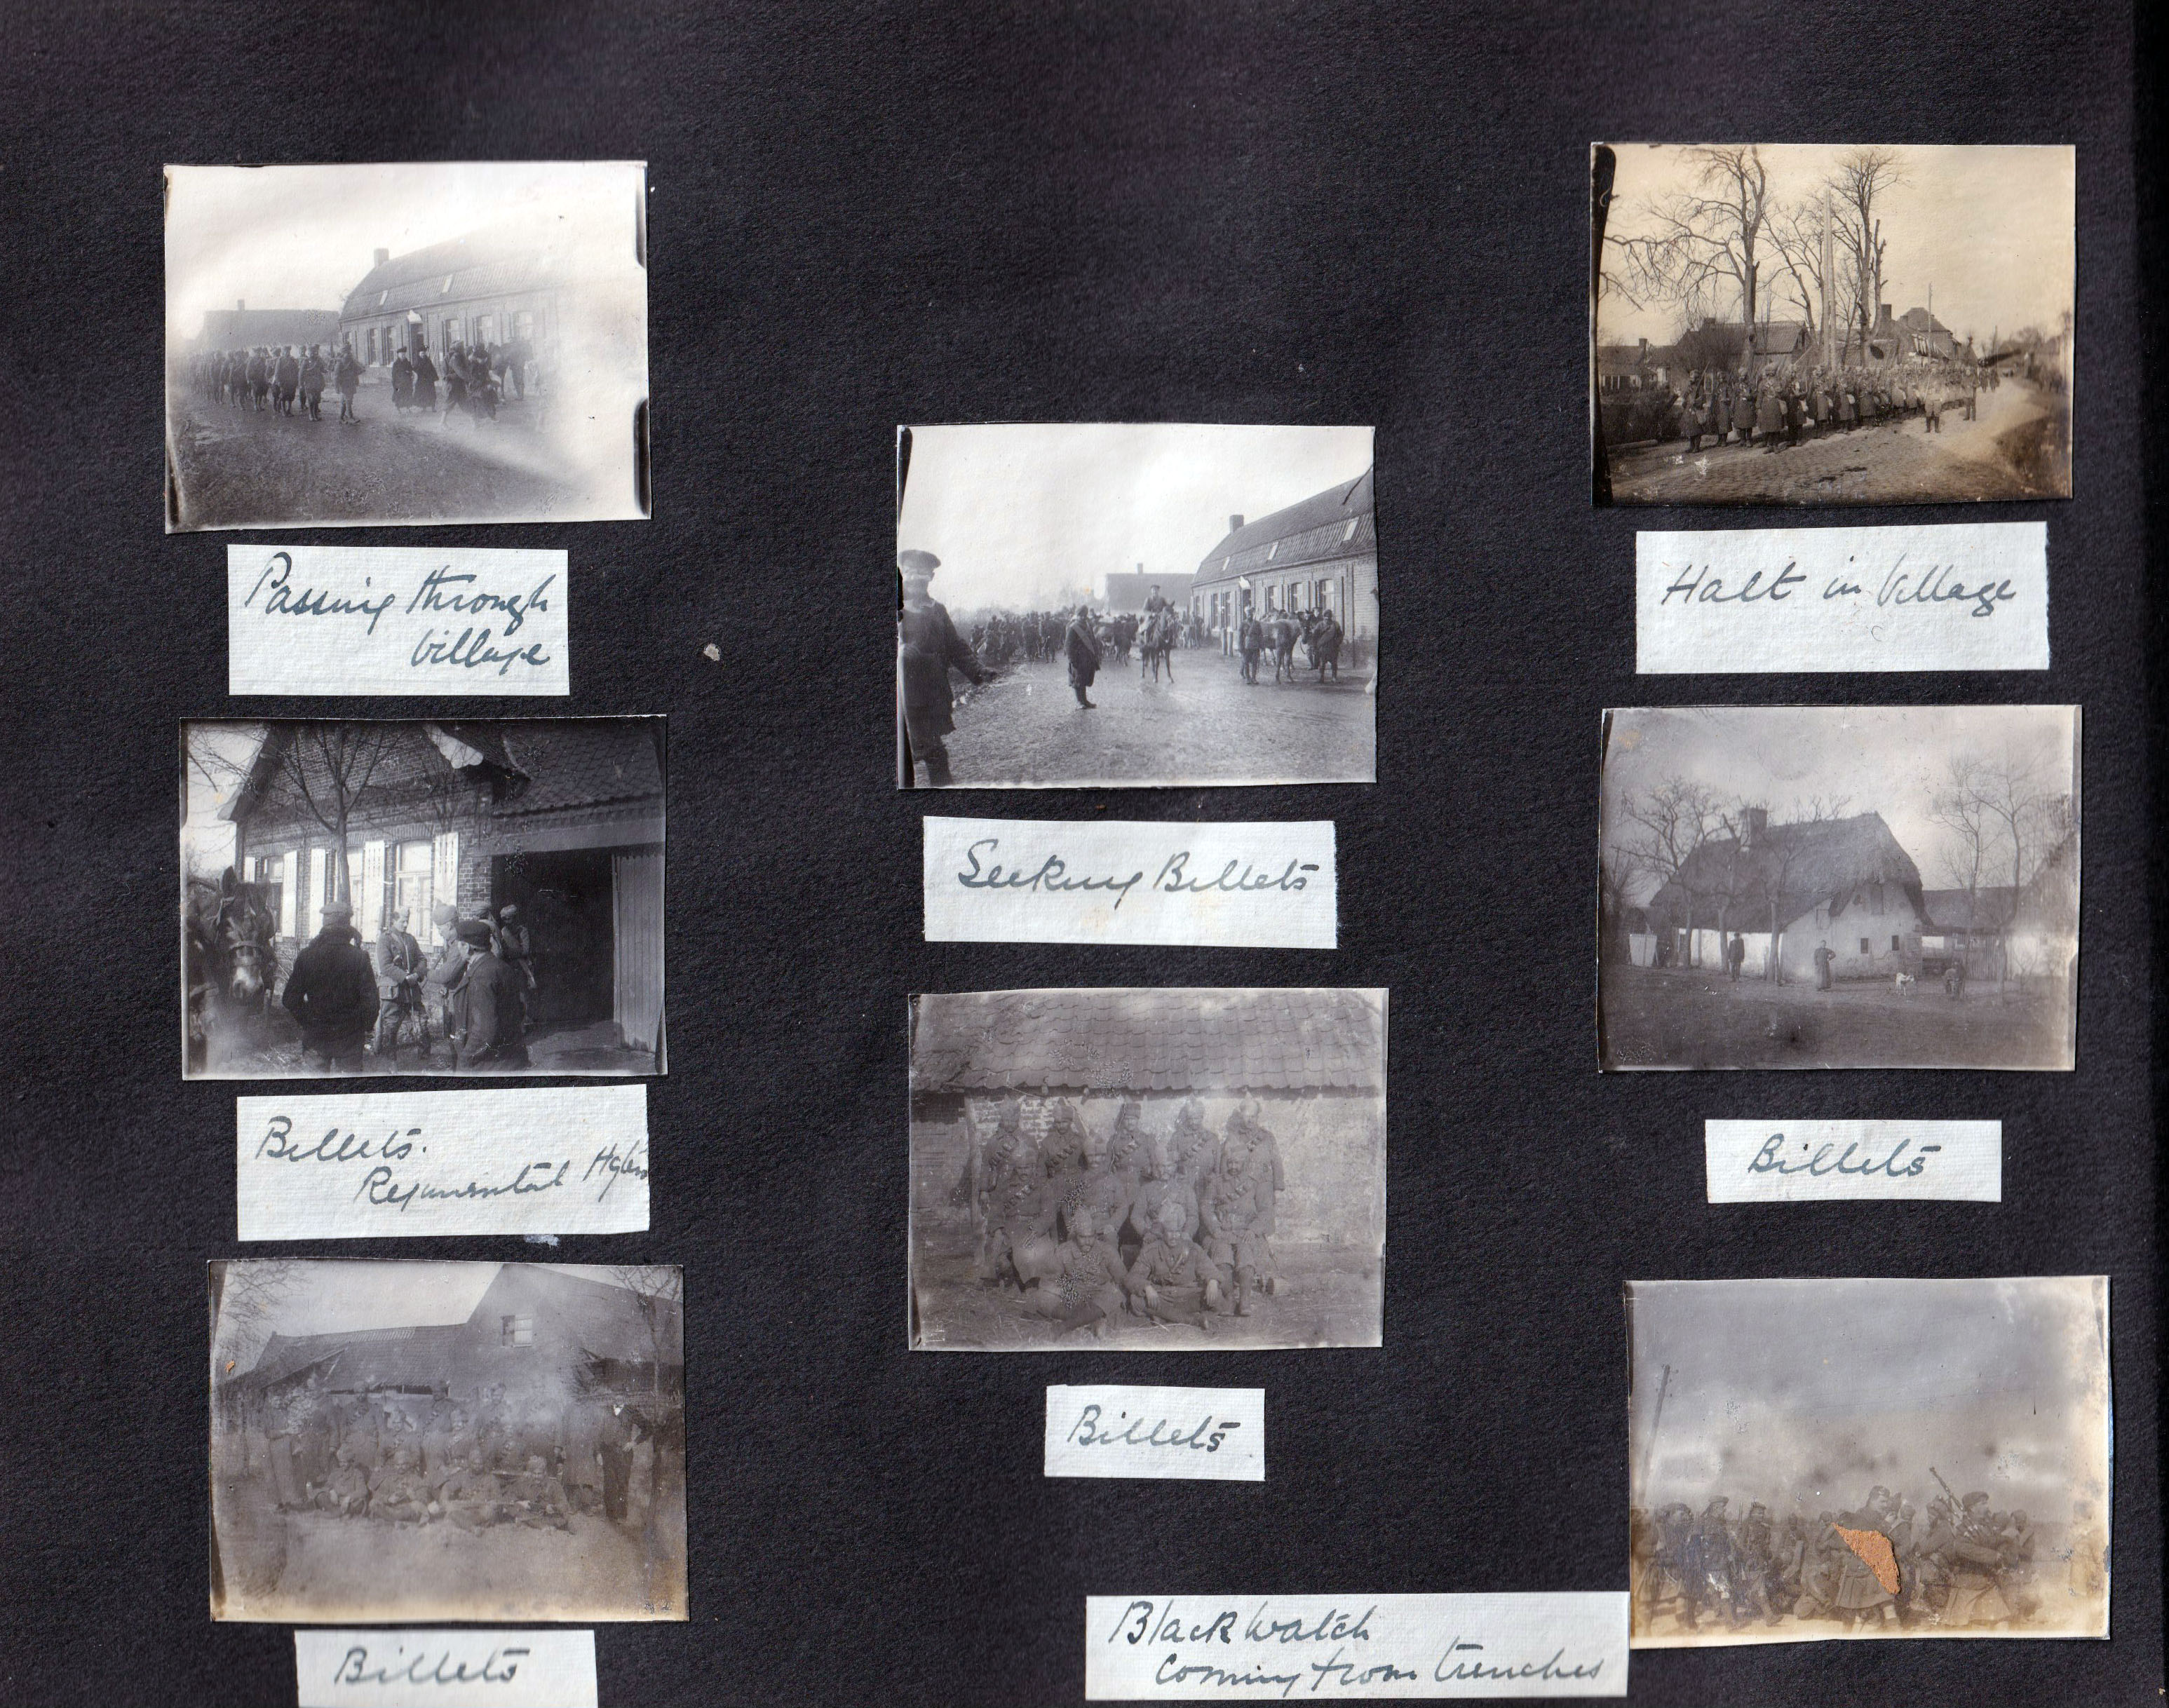 Passing through
village
Halt in Village
Seeking Billets
Billets.
Regimental Hqters
Billets
Billets
Billets
Black Watch
coming from trenches